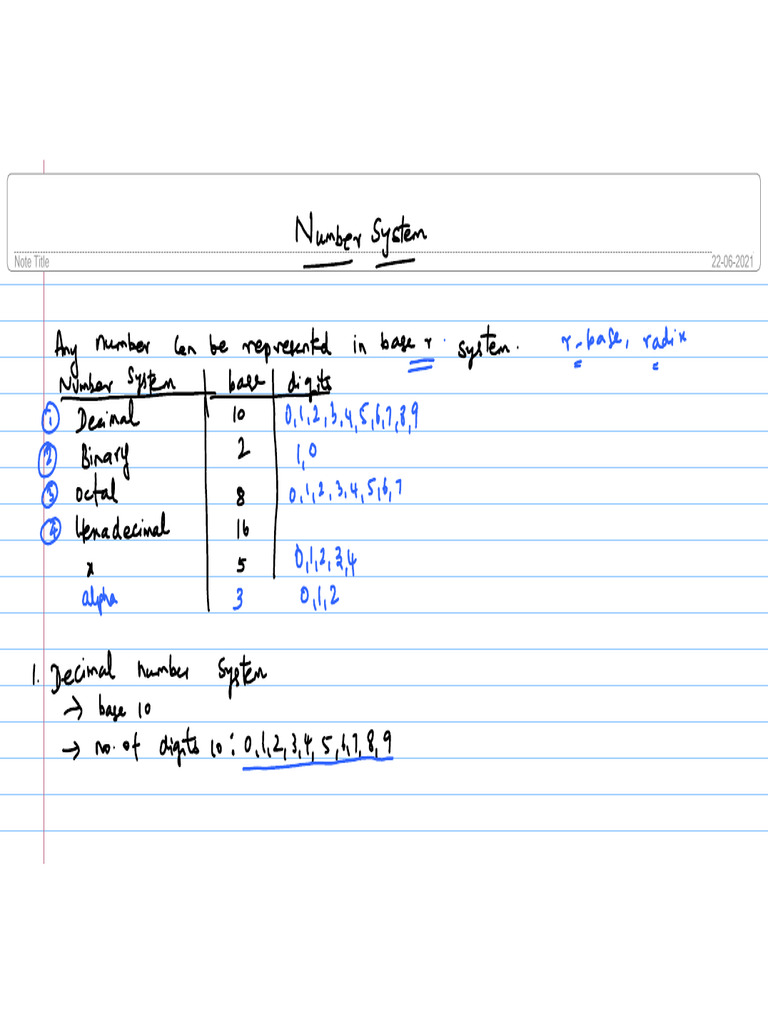 Number System
Note Title
22-06-2021
Any number can be represented in base r system. r-base, radix
Number System base digits
① Decimal 10 0,1,2,3,4,5,6,7,8,9
② Binary 2 1,0
③ Octal 8 0,1,2,3,4,5,6,7
④ Hexadecimal 16
x 5 0,1,2,3,4
alpha 3 0,1,2
1. Decimal number System
→ base 10
→ no. of digits 10: 0,1,2,3,4,5,6,7,8,9